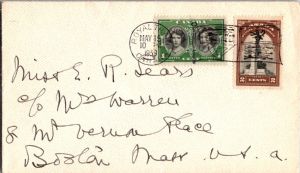 ROYAL
MAY 15
10
1939
CANADA
2 CENTS 2
Miss E. R. Sears
c/o Mrs Warren
8 Mt Vernon Place
Boston Mass. U.S.A.